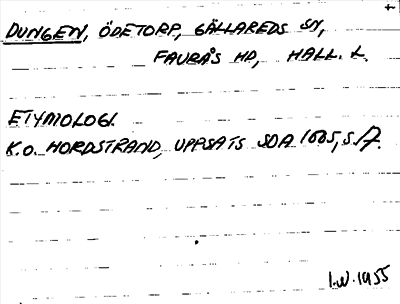 DUNGEN, ÖDETORP, GÄLLAREDS SN,
FAURÅS HD, HALL. L.
ETYMOLOGI.
K.O. NORDSTRAND, UPPSATS SOA 1605, S. 17.
I.W. 1955